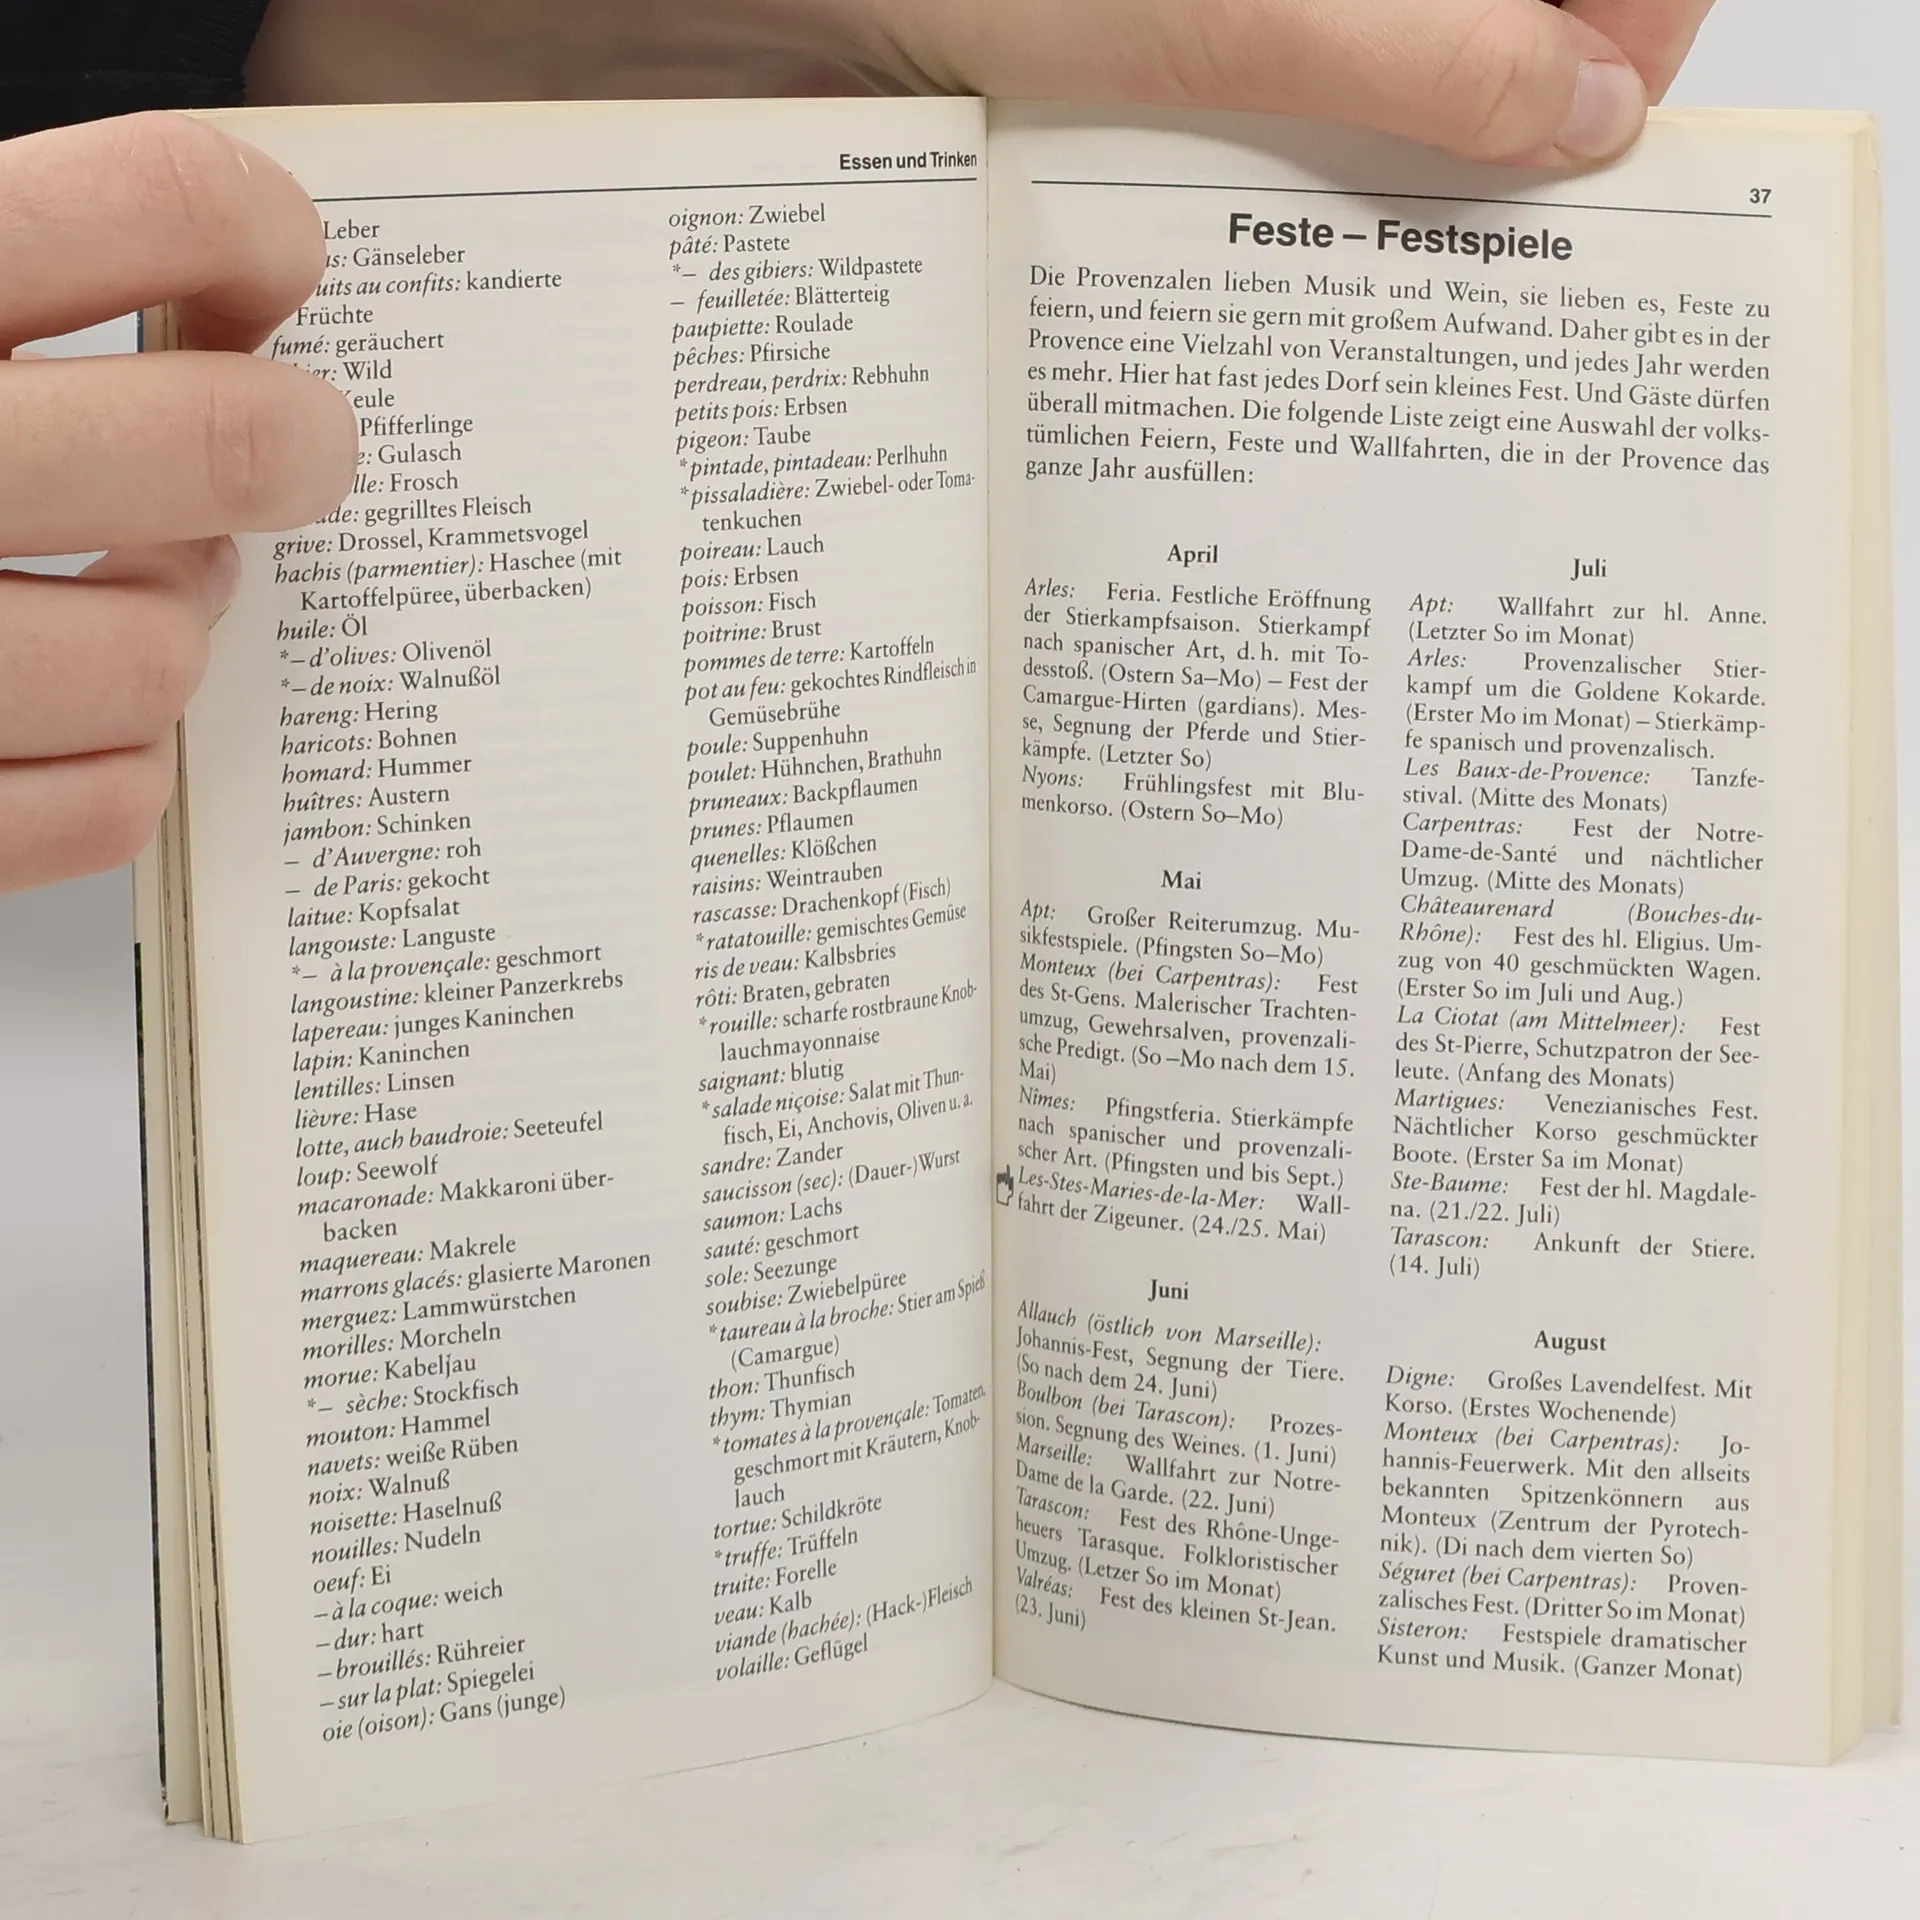 Essen und Trinken
Leber
Gänseleber
au confits: kandierte
Früchte
fumé: geräuchert
Wild
Keule
Pfifferlinge
Gulasch
Frosch
gegrilltes Fleisch
grive: Drossel, Krammetsvogel
hachis (parmentier): Haschee (mit
Kartoffelpüree, überbacken)
huile: Öl
*– d'olives: Olivenöl
*– de noix: Walnußöl
hareng: Hering
haricots: Bohnen
homard: Hummer
huîtres: Austern
jambon: Schinken
– d'Auvergne: roh
– de Paris: gekocht
laitue: Kopfsalat
langouste: Languste
*– à la provençale: geschmort
langoustine: kleiner Panzerkrebs
lapereau: junges Kaninchen
lapin: Kaninchen
lentilles: Linsen
lièvre: Hase
lotte, auch baudroie: Seeteufel
loup: Seewolf
macaronade: Makkaroni über-
backen
maquereau: Makrele
marrons glacés: glasierte Maronen
merguez: Lammwürstchen
morilles: Morcheln
morue: Kabeljau
*– sèche: Stockfisch
mouton: Hammel
navets: weiße Rüben
noix: Walnuß
noisette: Haselnuß
nouilles: Nudeln
oeuf: Ei
– à la coque: weich
– dur: hart
– brouillés: Rühreier
– sur la plat: Spiegelei
oie (oison): Gans (junge)
oignon: Zwiebel
pâté: Pastete
*– des gibiers: Wildpastete
– feuilletée: Blätterteig
paupiette: Roulade
pêches: Pfirsiche
perdreau, perdrix: Rebhuhn
petits pois: Erbsen
pigeon: Taube
*pintade, pintadeau: Perlhuhn
*pissaladière: Zwiebel- oder Toma-
tenkuchen
poireau: Lauch
pois: Erbsen
poisson: Fisch
poitrine: Brust
pommes de terre: Kartoffeln
pot au feu: gekochtes Rindfleisch in
Gemüsebrühe
poule: Suppenhuhn
poulet: Hühnchen, Brathuhn
pruneaux: Backpflaumen
prunes: Pflaumen
quenelles: Klößchen
raisins: Weintrauben
rascasse: Drachenkopf (Fisch)
*ratatouille: gemischtes Gemüse
ris de veau: Kalbsbries
rôti: Braten, gebraten
*rouille: scharfe rostbraune Knob-
lauchmayonnaise
saignant: blutig
*salade niçoise: Salat mit Thun-
fisch, Ei, Anchovis, Oliven u. a.
sandre: Zander
saucisson (sec): (Dauer-)Wurst
saumon: Lachs
sauté: geschmort
sole: Seezunge
soubise: Zwiebelpüree
*taureau à la broche: Stier am Spieß
(Camargue)
thon: Thunfisch
thym: Thymian
*tomates à la provençale: Tomaten,
geschmort mit Kräutern, Knob-
lauch
tortue: Schildkröte
*truffe: Trüffeln
truite: Forelle
veau: Kalb
viande (hachée): (Hack-)Fleisch
volaille: Geflügel
37
Feste – Festspiele
Die Provenzalen lieben Musik und Wein, sie lieben es, Feste zu
feiern, und feiern sie gern mit großem Aufwand. Daher gibt es in der
Provence eine Vielzahl von Veranstaltungen, und jedes Jahr werden
es mehr. Hier hat fast jedes Dorf sein kleines Fest. Und Gäste dürfen
überall mitmachen. Die folgende Liste zeigt eine Auswahl der volks-
tümlichen Feiern, Feste und Wallfahrten, die in der Provence das
ganze Jahr ausfüllen:
April
Arles: Feria. Festliche Eröffnung
der Stierkampfsaison. Stierkampf
nach spanischer Art, d. h. mit To-
desstoß. (Ostern Sa–Mo) – Fest der
Camargue-Hirten (gardians). Mes-
se, Segnung der Pferde und Stier-
kämpfe. (Letzter So)
Nyons: Frühlingsfest mit Blu-
menkorso. (Ostern So–Mo)
Mai
Apt: Großer Reiterumzug. Mu-
sikfestspiele. (Pfingsten So–Mo)
Monteux (bei Carpentras): Fest
des St-Gens. Malerischer Trachten-
umzug, Gewehrsalven, provenzali-
sche Predigt. (So –Mo nach dem 15.
Mai)
Nîmes: Pfingstferia. Stierkämpfe
nach spanischer und provenzali-
scher Art. (Pfingsten und bis Sept.)
Les-Stes-Maries-de-la-Mer: Wall-
fahrt der Zigeuner. (24./25. Mai)
Juni
Allauch (östlich von Marseille):
Johannis-Fest, Segnung der Tiere.
(So nach dem 24. Juni)
Boulbon (bei Tarascon): Prozes-
sion. Segnung des Weines. (1. Juni)
Marseille: Wallfahrt zur Notre-
Dame de la Garde. (22. Juni)
Tarascon: Fest des Rhône-Unge-
heuers Tarasque. Folkloristischer
Umzug. (Letzer So im Monat)
Valréas: Fest des kleinen St-Jean.
(23. Juni)
Juli
Apt: Wallfahrt zur hl. Anne.
(Letzter So im Monat)
Arles: Provenzalischer Stier-
kampf um die Goldene Kokarde.
(Erster Mo im Monat) – Stierkämp-
fe spanisch und provenzalisch.
Les Baux-de-Provence: Tanzfe-
stival. (Mitte des Monats)
Carpentras: Fest der Notre-
Dame-de-Santé und nächtlicher
Umzug. (Mitte des Monats)
Châteaurenard (Bouches-du-
Rhône): Fest des hl. Eligius. Um-
zug von 40 geschmückten Wagen.
(Erster So im Juli und Aug.)
La Ciotat (am Mittelmeer): Fest
des St-Pierre, Schutzpatron der See-
leute. (Anfang des Monats)
Martigues: Venezianisches Fest.
Nächtlicher Korso geschmückter
Boote. (Erster Sa im Monat)
Ste-Baume: Fest der hl. Magdale-
na. (21./22. Juli)
Tarascon: Ankunft der Stiere.
(14. Juli)
August
Digne: Großes Lavendelfest. Mit
Korso. (Erstes Wochenende)
Monteux (bei Carpentras): Jo-
hannis-Feuerwerk. Mit den allseits
bekannten Spitzenkönnern aus
Monteux (Zentrum der Pyrotech-
nik). (Di nach dem vierten So)
Séguret (bei Carpentras): Proven-
zalisches Fest. (Dritter So im Monat)
Sisteron: Festspiele dramatischer
Kunst und Musik. (Ganzer Monat)